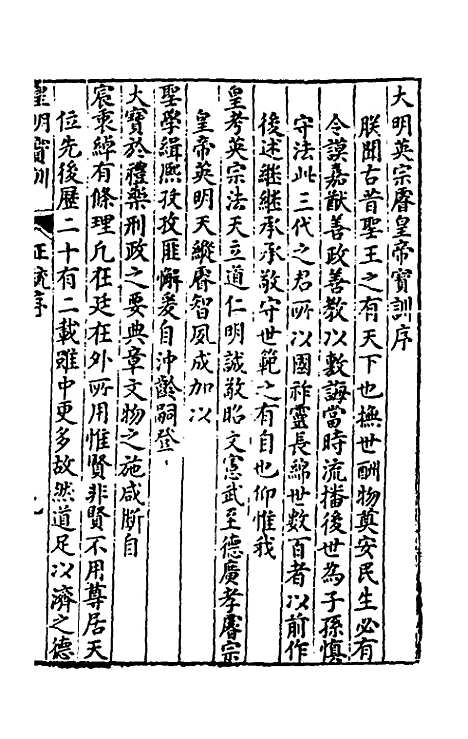 大明英宗睿皇帝寳訓序
朕聞古昔聖王之有天下也撫世酬物奠安民生必有
令謨嘉猷善政善教以敷誨當時流播後世為子孫慎
守法此三代之君所以國祚靈長綿世數百者以前作
後述繼繼承承敬守世範之有自也仰惟我
皇考英宗法天立道仁明誠敬昭文憲武至德廣孝睿宗
皇帝英明天縱睿智夙成加以
聖學緝熙孜孜匪懈爰自沖齡嗣登
大寶於禮樂刑政之要典章文物之施咸斷自
宸衷綽有條理凡在廷在外所用惟賢非賢不用蓴居天
位先後歷二十有二載雖中更多故然道足以濟之德
皇明寳訓
正統序